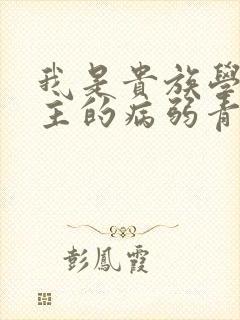 我是貴族學
主的病弱青
彭鳳霞